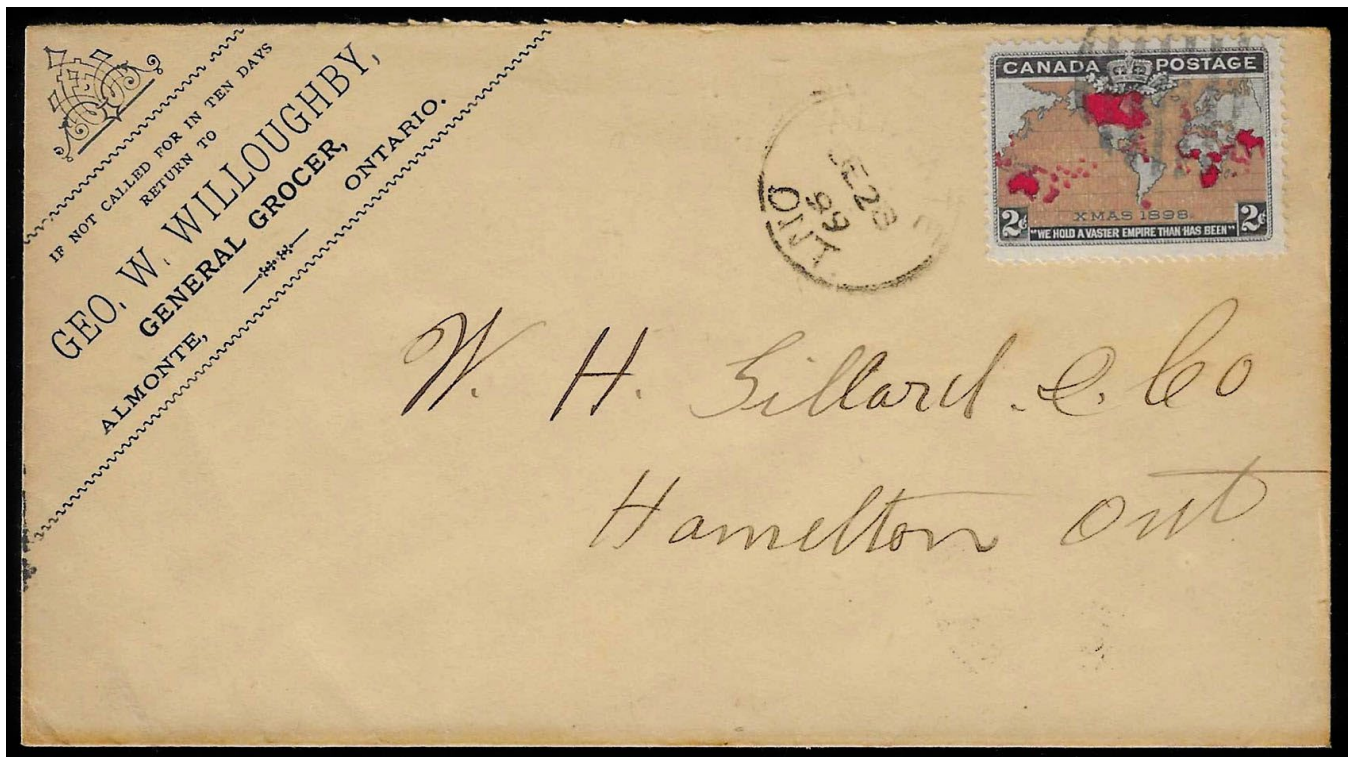 IF NOT CALLED FOR IN TEN DAYS
RETURN TO
GEO. W. WILLOUGHBY,
GENERAL GROCER,
ALMONTE, ONTARIO.
CANADA POSTAGE
XMAS 1898
2¢ 2¢
"WE HOLD A VASTER EMPIRE THAN HAS BEEN"
28
99
ONT
W. H. Gillard & Co
Hamelton Ont